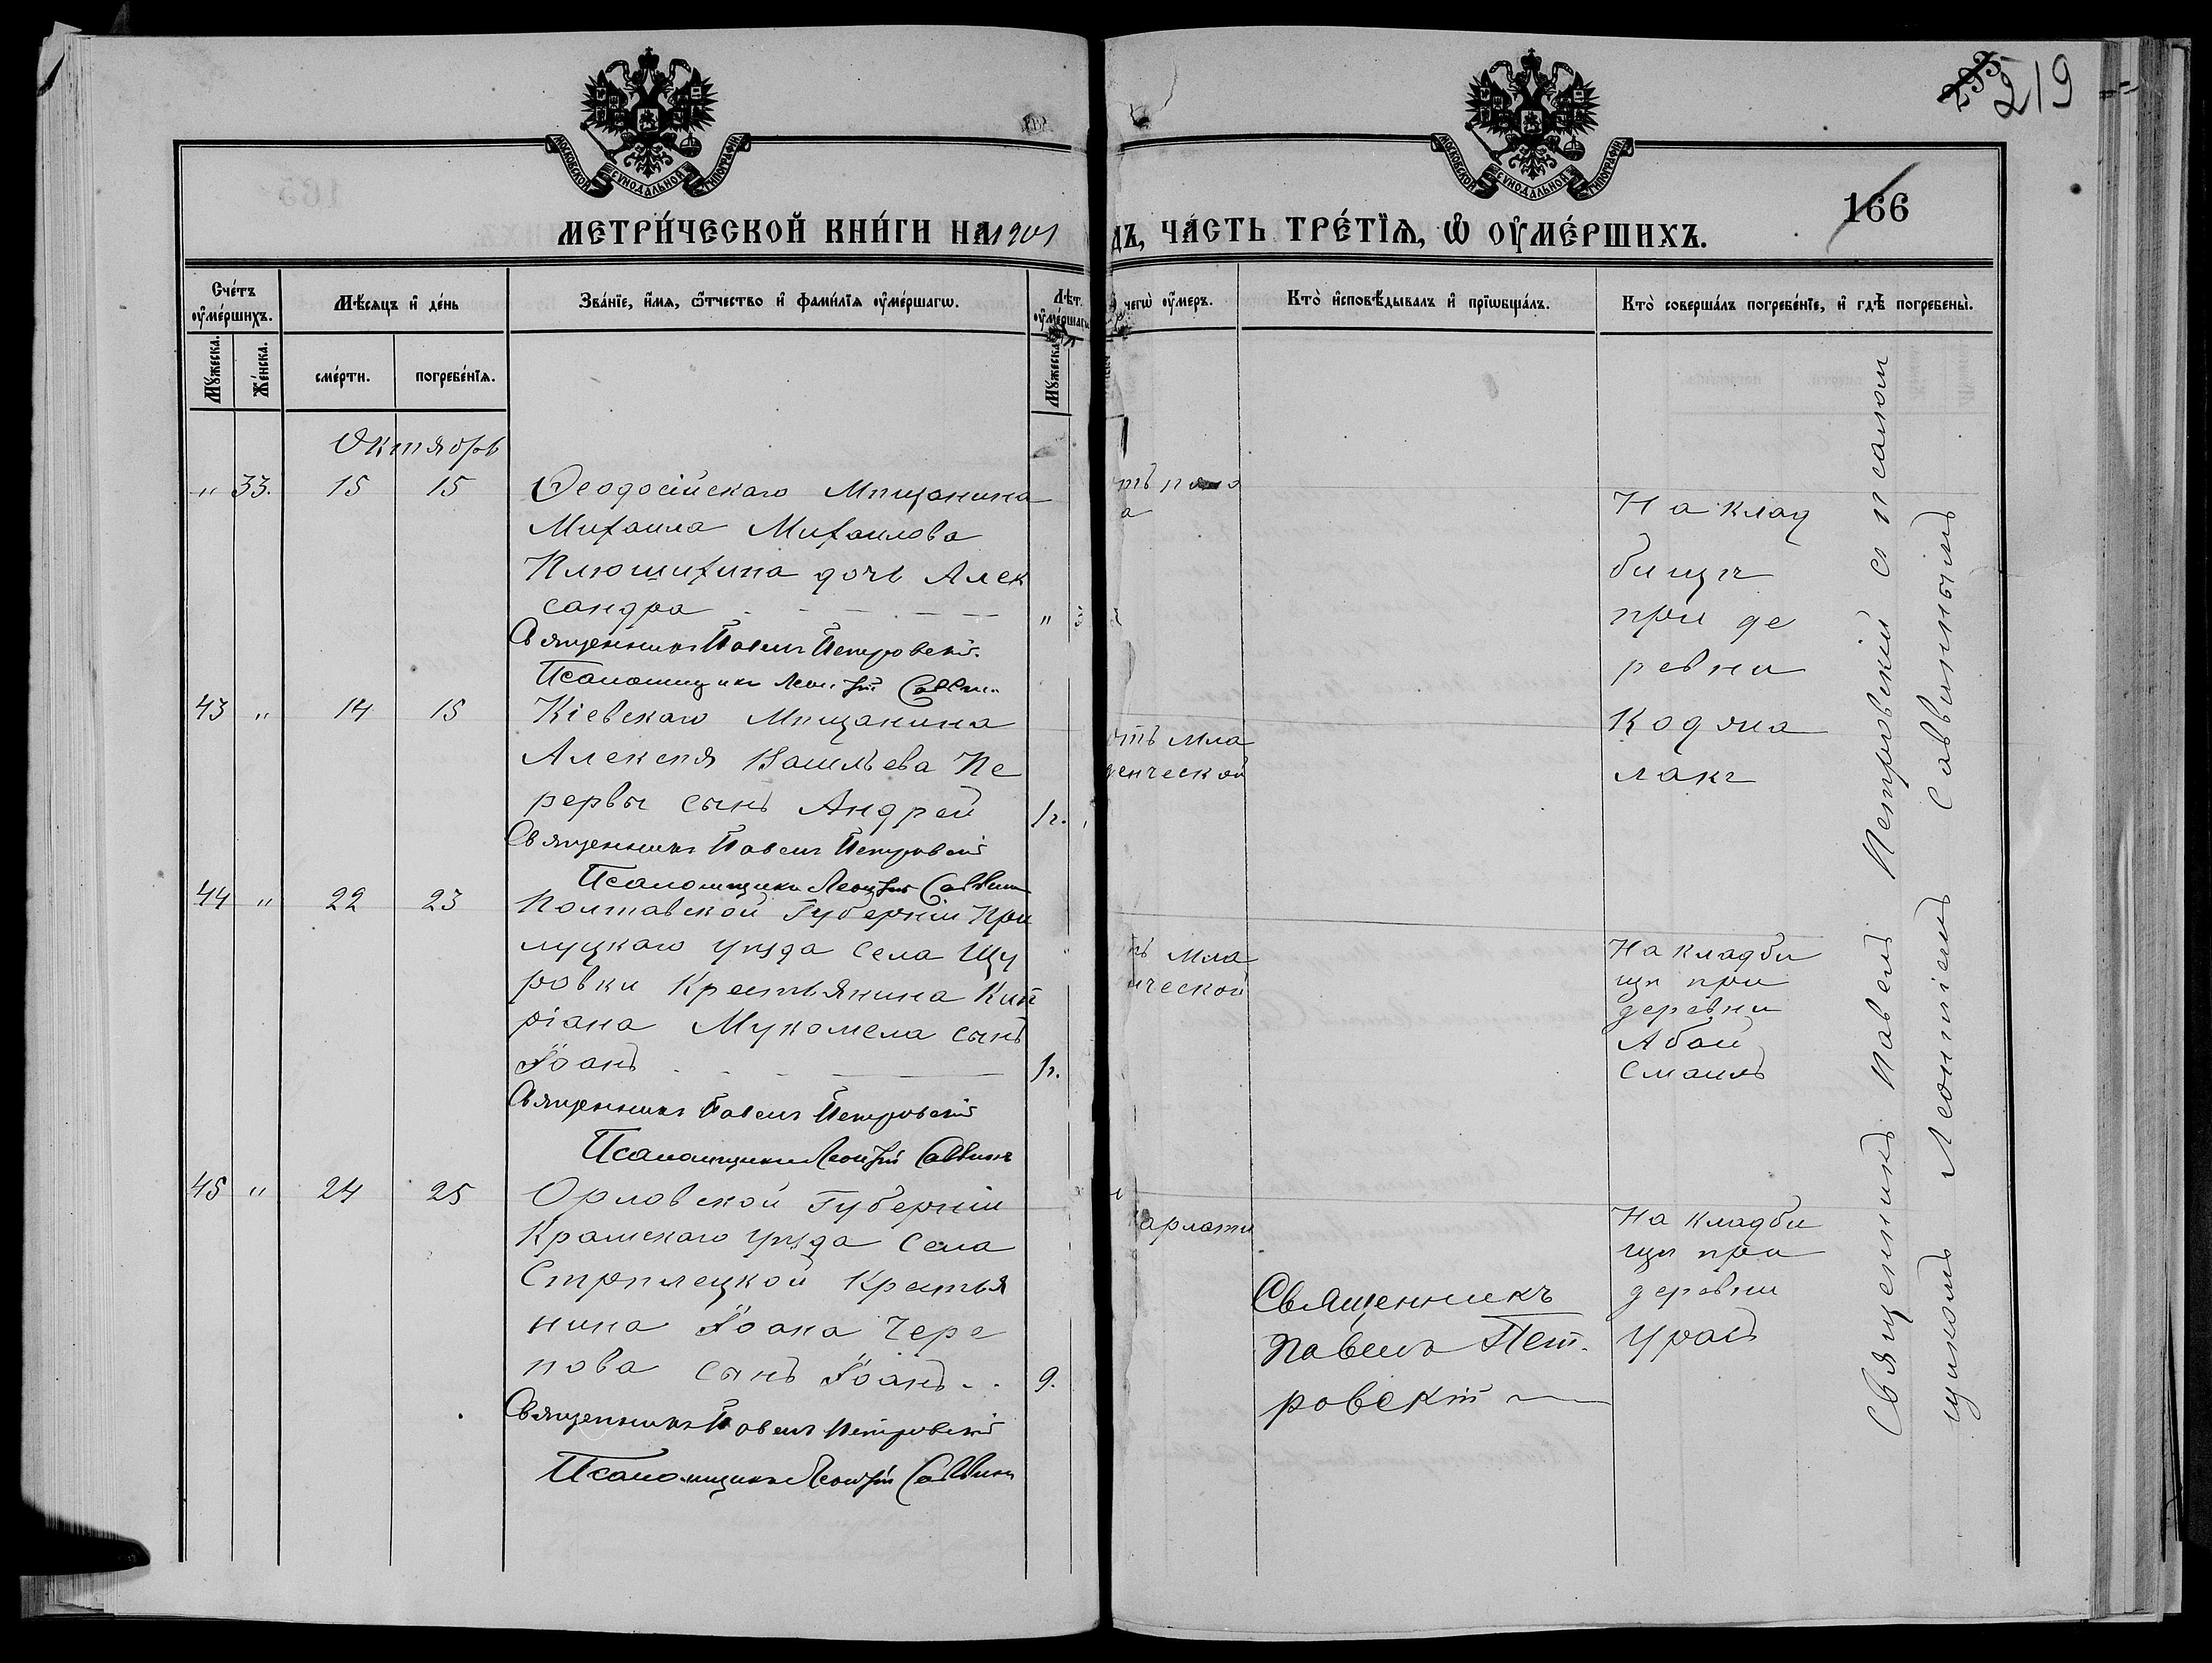 219
166
МОСКОВСКОЙ СѴНОДАЛЬНОЙ ТИПОГРАФІИ
МОСКОВСКОЙ СѴНОДАЛЬНОЙ ТИПОГРАФІИ
МЕТРИ́ЧЕСКОЙ КНИ́ГИ НА 1901
ДЪ, ЧА́СТЬ ТРЕ́ТЇѦ, Ѡ҆ ОУ҆МЕ́РШИХЪ.
Сче́тъ оу҆ме́ршихъ.
Мѣ́сѧцъ и҆ де́нь
Зва́нїе, и҆́мѧ, ѻ҆́тчество и҆ фами́лїѧ оу҆ме́ршагѡ.
Лѣ́т. оу҆ме́ршагѡ
чегѡ̀ оу҆́меръ.
Кто̀ и҆сповѣ́дывалъ и҆ прїѡбща́лъ.
Кто̀ соверша́лъ погребе́нїе, и҆ гдѣ̀ погребены̀.
Мꙋ́жеска.
Же́нска.
сме́рти.
погребе́нїѧ.
Мꙋ́жеска
Октябрь
" 33. 15 15
Ѳеодосійскаго Мѣщанина
Михаила Михаилова
Плюшихина дочь Алек
сандра " 3
Священникъ Павелъ Петровскій.
Псаломщикъ Леонтій Саввин
а
На клад
бищѣ
при де
ревни
Коджа
лакъ
43 " 14 15
Кіевскаго Мѣщанина
Алексѣя Васильева Пе
рервы сынъ Андрей 1г.
Священникъ Павелъ Петровскій
Псаломщикъ Леонтій Саввин
отъ мла
денческой
44 " 22 23
Полтавской Губерніи При
луцкаго уѣзда Села Щу
ровки Крестьянина Кип
ріана Мукомела сынъ
Іоанъ 1г.
Священникъ Павелъ Петровскій
Псаломщикъ Леонтій Саввинъ
тъ мла
ической
На кладби
щѣ при
деревни
Абай
Смаилъ
45 " 24 25
Орловской Губерніи
Крамскаго уѣзда Села
Стрѣлецкой Крестья
нина Іоана Чере
пова сынъ Іоанъ 9.
Священникъ Павелъ Петровскій
Псаломщикъ Леонтій Саввин
арлати
Священникъ
Павелъ Пет.
ровскій
На кладби
щѣ при
деревни
Урасъ
Священникъ Павелъ Петровскій съ псалом
щикомъ Леонтіемъ Саввинымъ